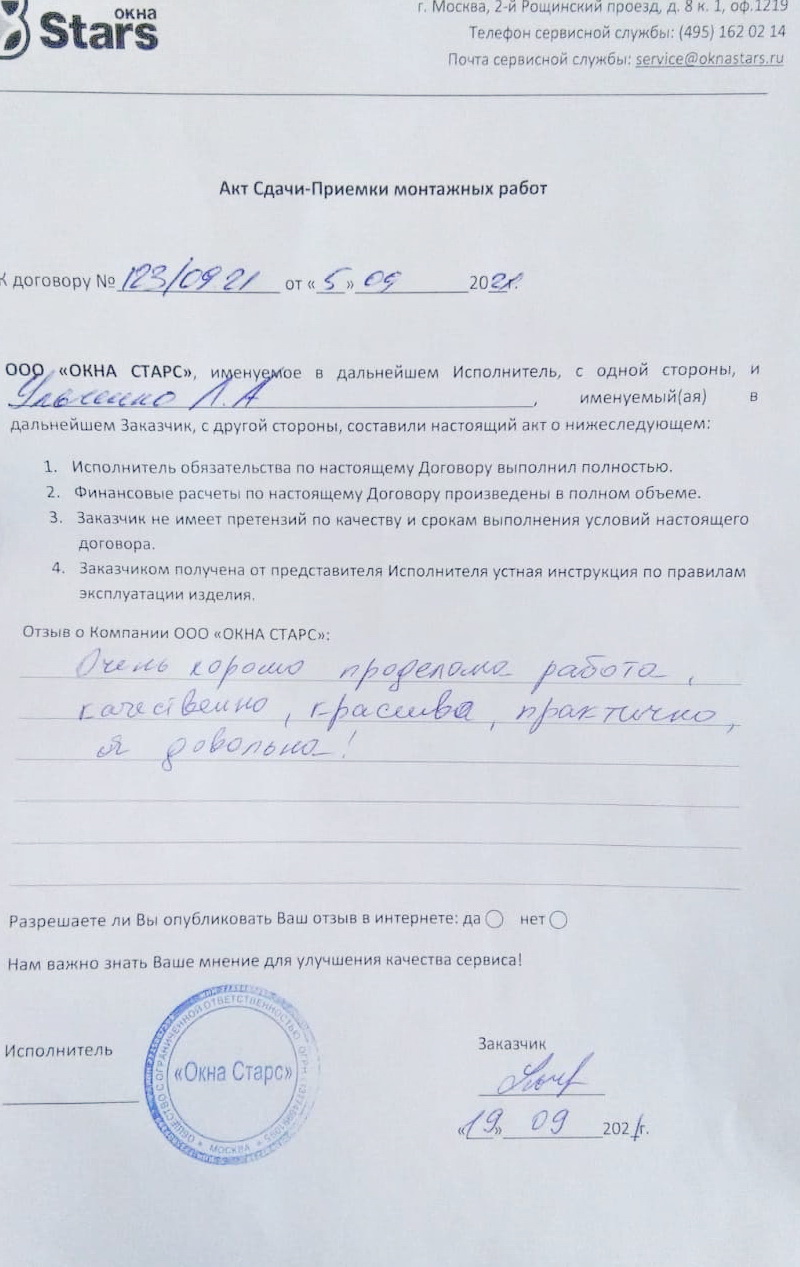 окна
Stars
г. Москва, 2-й Рощинский проезд, д. 8 к. 1, оф.1219
Телефон сервисной службы: (495) 162 02 14
Почта сервисной службы: service@oknastars.ru
Акт Сдачи-Приемки монтажных работ
К договору № 123/0921 от «5» 09 2021г.
ООО «ОКНА СТАРС», именуемое в дальнейшем Исполнитель, с одной стороны, и
Л.А, именуемый(ая) в
дальнейшем Заказчик, с другой стороны, составили настоящий акт о нижеследующем:
1. Исполнитель обязательства по настоящему Договору выполнил полностью.
2. Финансовые расчеты по настоящему Договору произведены в полном объеме.
3. Заказчик не имеет претензий по качеству и срокам выполнения условий настоящего
договора.
4. Заказчиком получена от представителя Исполнителя устная инструкция по правилам
эксплуатации изделия.
Отзыв о Компании ООО «ОКНА СТАРС»:
Очень хорошо проделома работа,
качественно, красива, практично,
я довольна!
Разрешаете ли Вы опубликовать Ваш отзыв в интернете: да нет
Нам важно знать Ваше мнение для улучшения качества сервиса!
Исполнитель
Заказчик
ОБЩЕСТВО С ОГРАНИЧЕННОЙ ОТВЕТСТВЕННОСТЬЮ
«Окна Старс»
МОСКВА
«19» 09 2021г.